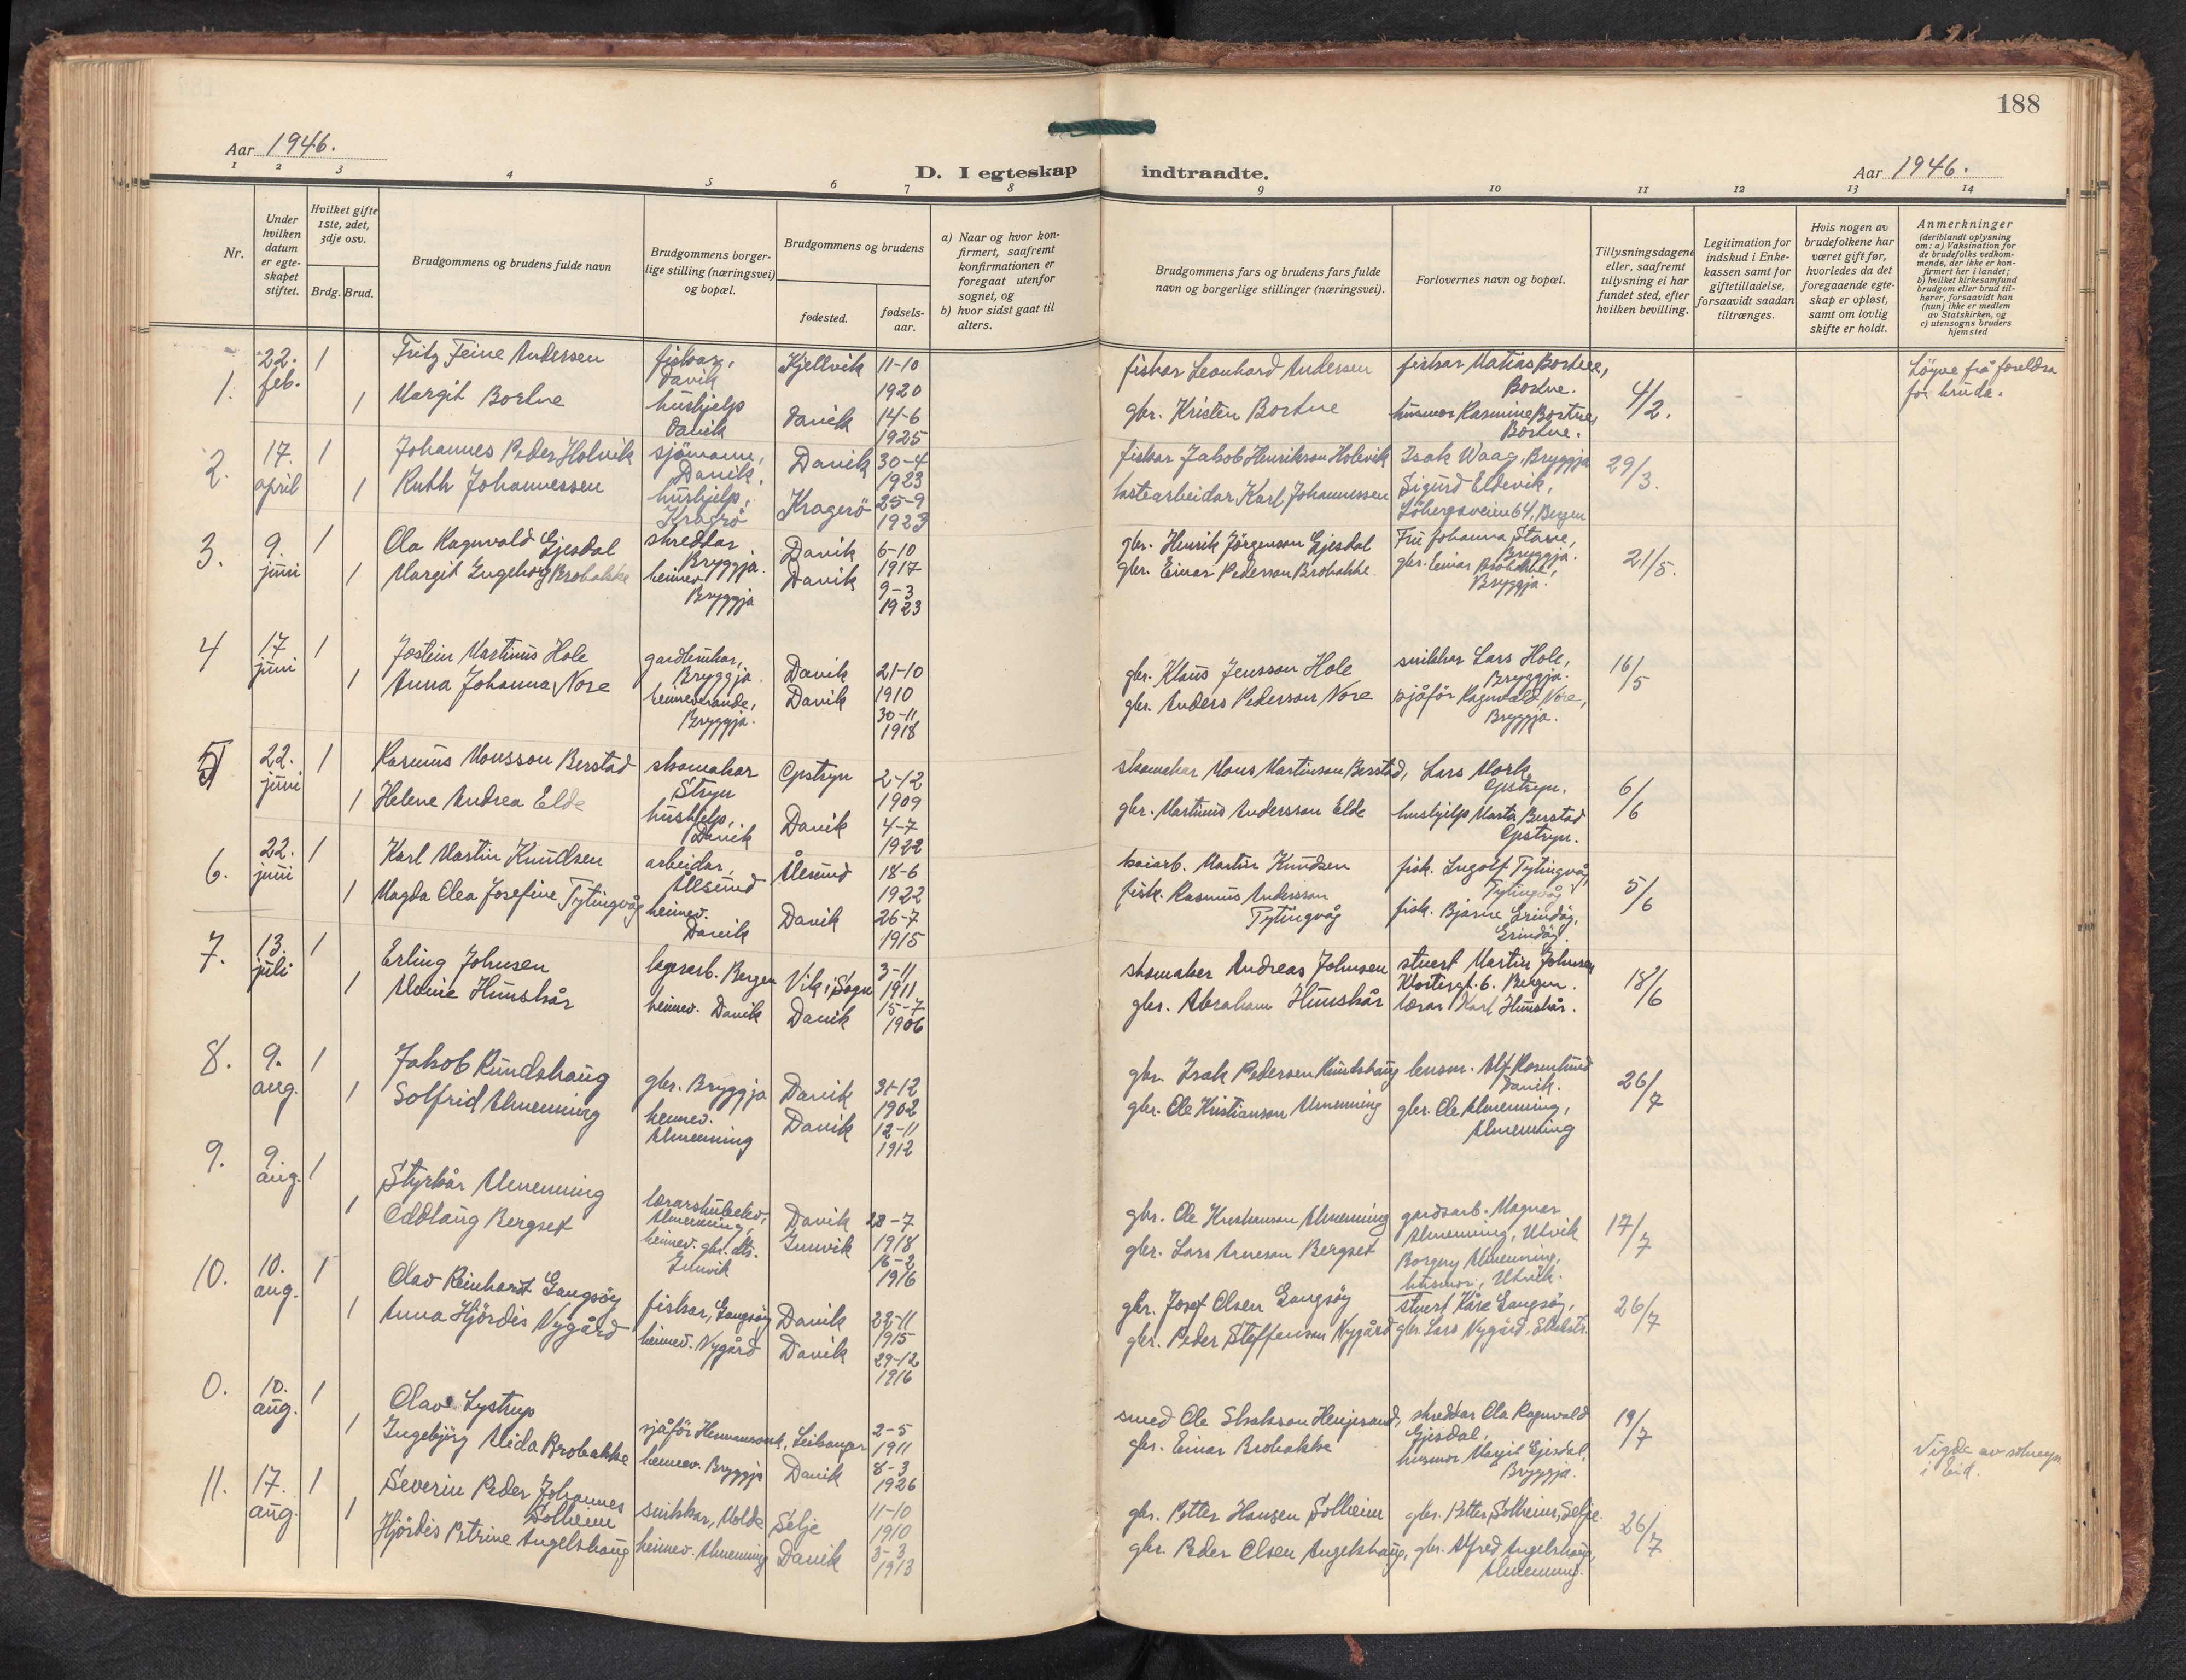 188
Aar 1946.
D. I egteskap indtraadte.
Aar 1946.
1 2 3 4 5 6 7 8 9 10 11 12 13 14
Nr.
Under hvilken datum er egteskapet stiftet.
Hvilket gifte 1ste, 2det, 3dje osv.
Brdg. Brud.
Brudgommens og brudens fulde navn
Brudgommens borgerlige stilling (næringsvei) og bopæl.
Brudgommens og brudens
fødested.
fødselsaar.
a) Naar og hvor konfirmert, saafremt konfirmationen er foregaat utenfor sognet, og
b) hvor sidst gaat til alters.
Brudgommens fars og brudens fars fulde navn og borgerlige stillinger (næringsvei).
Forlovernes navn og bopæl.
Tillysningsdagene eller, saafremt tillysning ei har fundet sted, efter hvilken bevilling.
Legitimation for indskud i Enkekassen samt for giftetilladelse, forsaavidt saadan tiltrænges.
Hvis nogen av brudefolkene har været gift før, hvorledes da det foregaaende egteskap er opløst, samt om lovlig skifte er holdt.
Anmerkninger (deriblandt oplysning om: a) Vaksination for de brudefolks vedkommende, der ikke er konfirmert her i landet; b) hvilket kirkesamfund brudgom eller brud tilhører, forsaavidt han (hun) ikke er medlem av Statskirken, og c) utensogns bruders hjemsted
1. 22. feb. 1 Fritz Feine Andersen fiskar, Davik Kjellvik 11-10 1920 fiskar Leonhard Andersen fiskar Matias Bortne, Bortne. 4/2. Løyve frå foreldra for bruda.
1 Margit Bortne hushjelp Davik Davik 14-6 1925 gbr. Kristen Bortne husmor Rasmine Bortne, Bortne.
2. 17. april 1 Johannes Peder Holvik sjømann, Davik, Davik 30-4 1923 fiskar Jakob Henrikson Holevik Isak Waag, Bryggja 29/3.
1 Ruth Johannessen hushjelp, Kragrø Kragerö 25-9 1923 lastearbeidar Karl Johannessen Sigurd Eldevik, 64, Bergen
3. 9. juni 1 Ola Ragnvald Gjesdal skreddar Bryggja. Davik 6-10 1917 gbr. Henrik Jørgenson Gjesdal Fru Johanna Bryggja. 21/5.
1 Margit Ingeborg Brobakke heimev. Bryggja Davik 9-3 1923 gbr. Einar Pederson Brobakke. gbr. Einar Brobakke, Bryggja.
4 17 juni 1 Jostein Martinus Hole gardbrukar, Bryggja. Davik 21-10 1910 gbr. Klaus Jensson Hole snikkar Lars Hole, Bryggja. 16/5
1 Anna Johanna Nore heimeverande, Bryggja. Davik 30-11 1918 gbr. Anders Pederson Nore sjåfør Ragnvald Nore, Bryggja.
5 22. juni 1 Rasmus Monsson Berstad skomakar Stryn Opstryn 2-12 1909 skomakar Mons Martinson Berstad, Lars Mork, Opstryn. 6/6
1 Helene Andrea Elde hushjelp, Davik Davik 4-7 1922 gbr. Martinus Andersson Elde hushjelp Marta Berstad Opstryn.
6. 22. juni 1 Karl Martin Knudsen arbeidar, Ålesund Ålesund 18-6 1922 kaiarb. Martin Knudsen fisk. Ingolf Tytingvåg, Tytingvåg 5/6
1 Magda Olea Josefine Tytingvåg heimev. Davik Davik 26-7 1915 fisk. Rasmus Andersson Tytingvåg fisk. Bjarne Grindøy, Grindøy.
7. 13. juli 1 Erling Johnsen lagerarb. Bergen Vik i Sogn 3-11 1911 skomaker Andreas Johnsen stuert Martin Johnsen Klostergt. 6. Bergen. 18/6
1 Hunskår heimev. Davik Davik 15-7 1906 gbr. Abraham Hunskår lærar Karl Hunskår.
8. 9. aug. 1 Jakob Rundshaug gbr. Bryggja Davik 31-12 1902 gbr. Isak Pedersen Rundshaug lensm. Alf Rosenlund Davik. 26/7
1 Solfrid Almenning heimev. Almenning Davik 12-11 1912 gbr. Ole Kristianson Almenning gbr. Ole Almenning, Almenning
9. 9. aug. 1 Styrkår Almenning lærarskuleelev, Almenning, Davik 28-7 1918 gbr. Ole Kristianson Almenning gardsarb. Magnar Almenning, Utvik 17/7
1 Oddlaug Bergset heimev. gbr. dtr. Innvik Innvik 16-2 1916 gbr. Lars Arneson Bergset Borgny Almenning, husmor, Utvik.
10. 10. aug. 1 Olav Reinhardt Gangsøy fiskar, Gangsøy Davik 22-11 1915 gbr. Josef Olsen Gangsøy stuert Kåre Gangsøy, 26/7
1 Anna Hjördis Nygård heimev. Nygård Davik 29-12 1916 gbr. Peder Steffenson Nygård gbr. Lars Nygård,
0. 10. aug. 1 Olav Systrup sjåfør Hermansverk, Leikanger 2-5 1911 smed Ole skreddar Ola Ragnvald Gjesdal, 19/7
1 Ingebjörg Alida Brobakke heimev. Bryggja Davik 8-3 1926 gbr. Einar Brobakke husmor Margit Gjesdal, Bryggja. Vigde av sokneprt i Eid.
11. 17. aug. 1 Severin Peder Johannes Solheim snikkar, Molde Selje 11-10 1910 gbr. Petter Hansen Solheim gbr. Petter Solheim, Selje. 26/7
1 Hjördis Petrine Angelshaug heimev. Almenning Davik 3-3 1913 gbr. Peder Olsen Angelshaug, gbr. Alfred Angelshaug, Almenning.